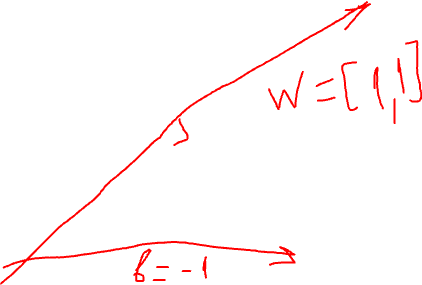 W = [1, 1]
b = -1